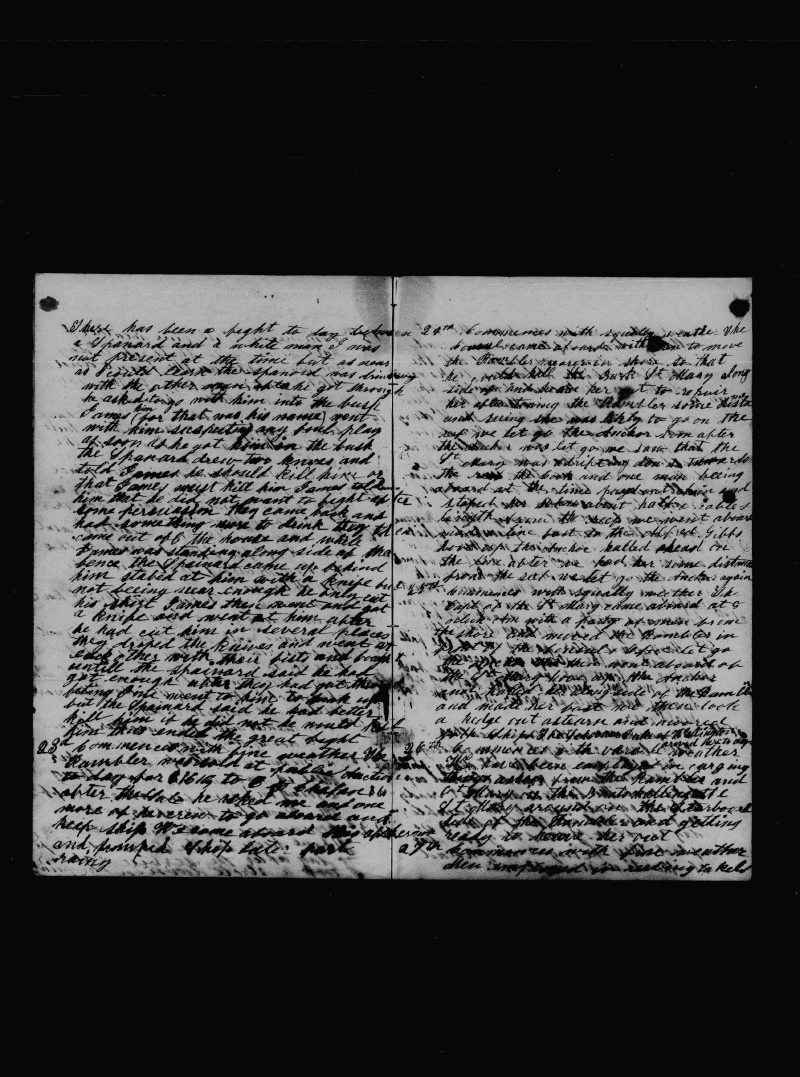 There has been a fight to day between
a Spanard and a white man I was
not present at the time but as near
as I could learn the spanard was drinking
with the other man after he got through
he asked to go with him into the bush
James (for that was his name) went
with him suspecting any foul play
as soon as he got him in the bush
the Spanard drew two knives and
told James he should kill him or
that James must kill him James told
him that he did not want to fight after
some persuasion they came back and
had something more to drink they then
come out of the house and while
James was standing along side of the
fence the Spainard came up behind
him stabed at him with a knife but
not beeing near enough he only cut
his shirt James then went and got
a knife and went at him after
he had cut him in several places
they droped the knives and went at
each other with their fists and
untill the Spainard said he had
got enough after they had got through
James went to him to
but the Spainard said he had better
kill him if he did not he would kill
him thus ended the great fight
23d Commences with fine weather the
Rambler was sold at public auction
to day for $1615 to
after the sale he asked me and one
more of her crew to go aboard and
keep ship We come aboard this afternoon
and pumped ship late part
rainy
24th Commences with squally weather the
came aboard with men to move
the Rambler nearer in shore so that
he could hall the Bark St Mary along
side of and heave her out to repair
her after towing the Rambler some distance
and seeing she was likely to go on the
reef we let go the anchor soon after
the anchor was let go we saw that the
St Mary was adrifting down towards
the reef the cook and one man beeing
aboard at the time payed out chain and
stoped her when about half a cables
length from the reef we went aboard
line fast to the ship J. Gibbs
hove up the anchor halled ahead on
the line after we had her some distance
from the reef we let go the anchor again
25th Commences with squally weather the
Capt of the St Mary came aboard at 8
oclock AM with a party of men from
the shore and moved the Rambler in
let go
the anchor then went aboard of
the St Mary hove up the anchor
and halled her along side of the Rambler
and made her fast we then took
a kedge out astearn and
26th Commences with weather
been employed in carying
things ashore from the Rambler and
St Mary
St Mary around on the starboard
side of the Rambler and getting
ready to heave her out
27th Commences with fine weather
men employed in takels